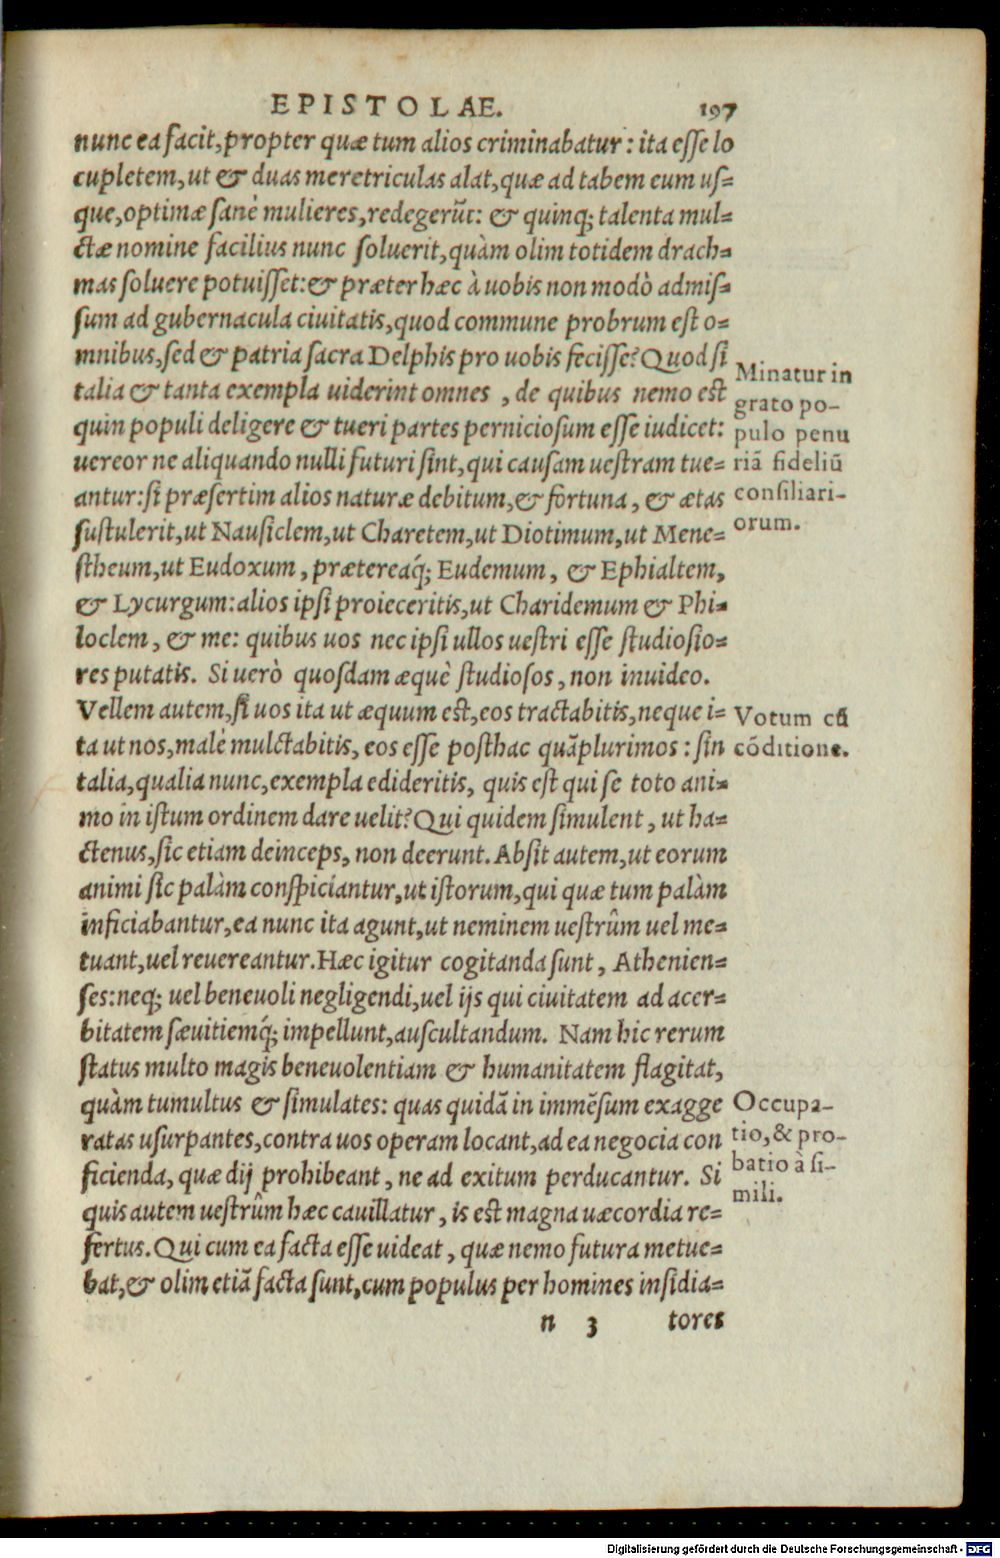 EPISTOLAE. 197
nunc ea facit, propter quæ tum alios criminabatur: ita esse lo
cupletem, ut & duas meretriculas alat, quæ ad tabem eum us=
que, optimæ sanè mulieres, redegerūt: & quinq; talenta mul=
ctæ nomine facilius nunc soluerit, quàm olim totidem drach=
mas soluere potuisset: & præter hæc à uobis non modò admis=
sum ad gubernacula ciuitatis, quod commune probrum est o=
mnibus, sed & patria sacra Delphis pro uobis fecisse? Quod si
talia & tanta exempla uiderint omnes, de quibus nemo est
quin populi deligere & tueri partes perniciosum esse iudicet:
uereor ne aliquando nulli futuri sint, qui causam uestram tue=
antur: si præsertim alios naturæ debitum, & fortuna, & ætas
sustulerit, ut Nausiclem, ut Charetem, ut Diotimum, ut Mene=
stheum, ut Eudoxum, prætereaq́; Eudemum, & Ephialtem,
& Lycurgum: alios ipsi proieceritis, ut Charidemum & Phi=
loclem, & me: quibus uos nec ipsi ullos uestri esse studiosio=
res putatis. Si uerò quosdam æquè studiosos, non inuideo.
Vellem autem, si uos ita ut æquum est, eos tractabitis, neque i=
ta ut nos, malè mulctabitis, eos esse posthac quāplurimos: sin
talia, qualia nunc, exempla edideritis, quis est qui se toto ani=
mo in istum ordinem dare uelit? Qui quidem simulent, ut ha=
ctenus, sic etiam deinceps, non deerunt. Absit autem, ut eorum
animi sic palàm conspiciantur, ut istorum, qui quæ tum palàm
inficiabantur, ea nunc ita agunt, ut neminem uestrûm uel me=
tuant, uel reuereantur. Hæc igitur cogitanda sunt, Athenien=
ses: neq; uel beneuoli negligendi, uel ijs qui ciuitatem ad acer=
bitatem sæuitiemq́; impellunt, auscultandum. Nam hic rerum
status multo magis beneuolentiam & humanitatem flagitat,
quàm tumultus & simulates: quas quidā in immēsum exagge
ratas usurpantes, contra uos operam locant, ad ea negocia con
ficienda, quæ dij prohibeant, ne ad exitum perducantur. Si
quis autem uestrûm hæc cauillatur, is est magna uæcordia re=
fertus. Qui cum ea facta esse uideat, quæ nemo futura metue=
bat, & olim etiā facta sunt, cum populus per homines insidia=
n 3 tores
Minatur in
grato po-
pulo penu
riā fideliū
consiliari-
orum.
Votum cū
cōditione.
Occupa-
tio, & pro-
batio à si-
mili.
Digitalisierung gefördert durch die Deutsche Forschungsgemeinschaft - DFG